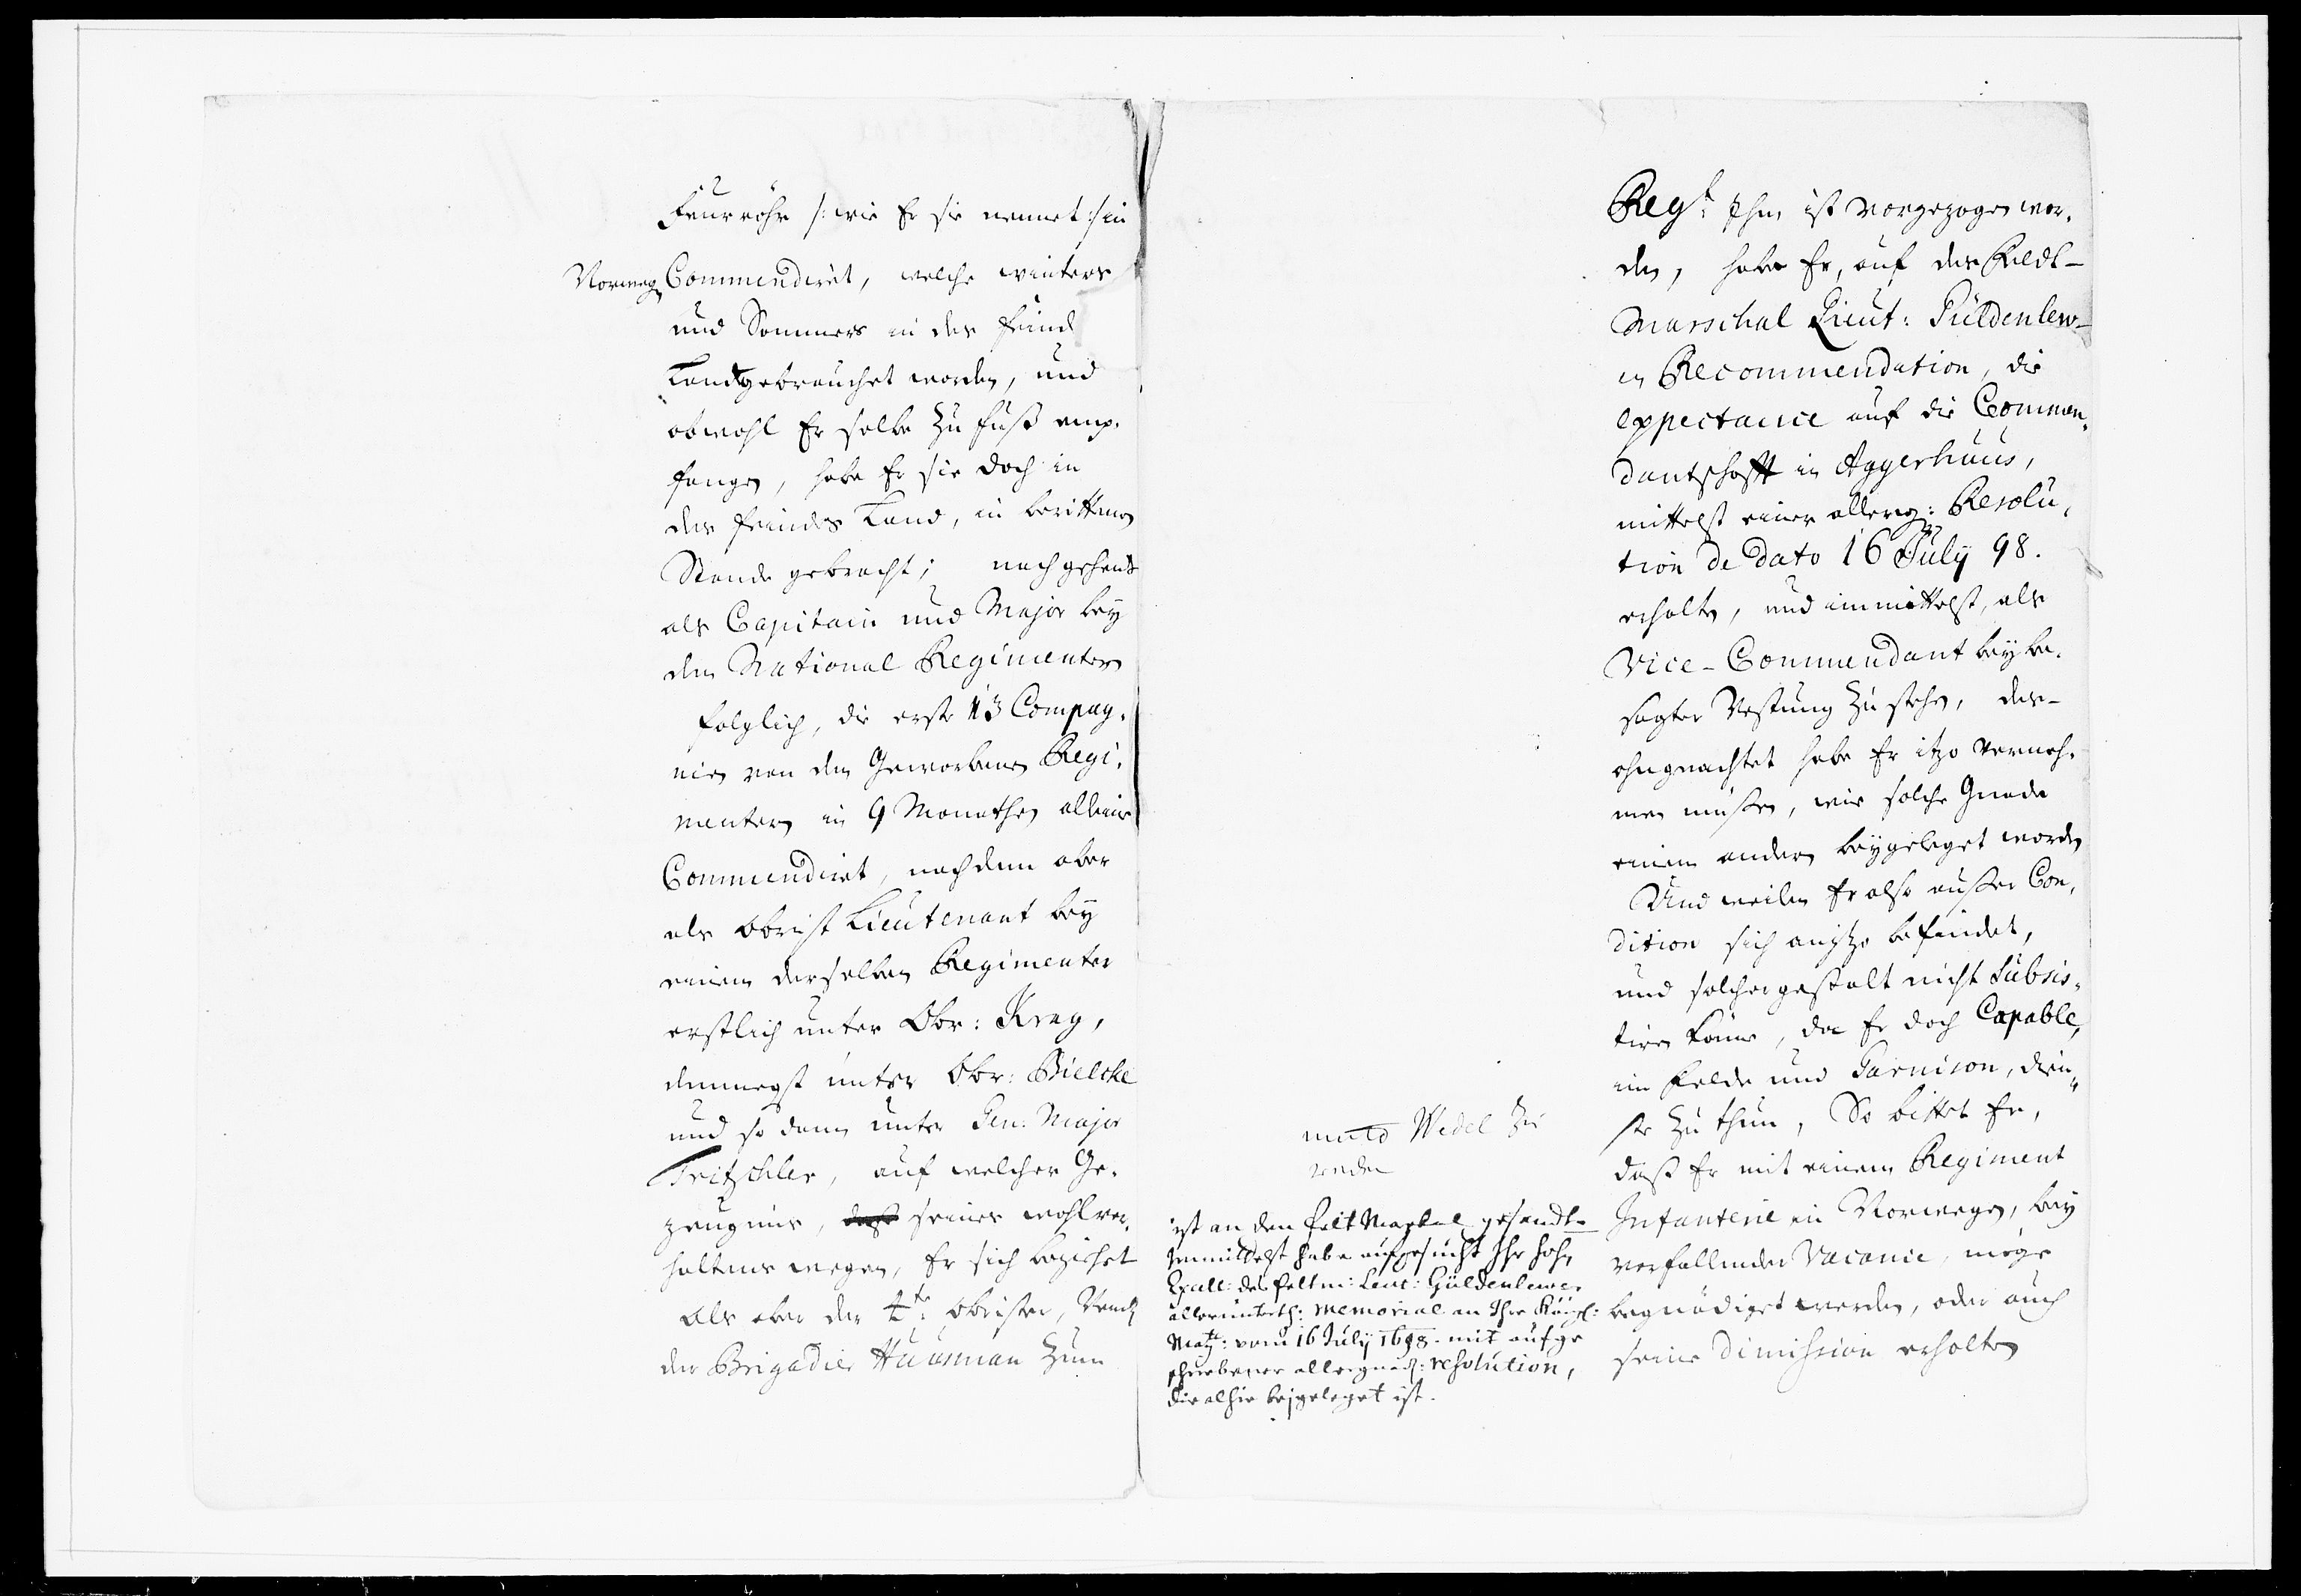 Feurröhr /: wie Er sie nennet :/ in
Norweg Commendirt, welche winters
und Sommers in der feind
Landt gebrauchet worden, und
obwohl Er selbe zu fuß emp-
fangen, habe Er sie doch in
der feindes Land, in berittenen
Stande gebracht; nachgehents
als Capitain und Major bey
den National Regimentern
folglich, die erste 13 Compag-
nien von den Geworbenen Regi-
mentern in 9 Monathen allein
Commendiret, nachdem aber
als Obrist Lieutenant bey
einem derselben Regimenter
erstlich unter Obr: Krag,
demnegst unter Obr: Bielcke
und so dann unter Gen: Major
Tritschler, auf welcher Ge-
zeugnis, seines wohlver-
haltens wegen, Er sich beziehet
Als aber der Obrister,
der Brigadier Huusman zum
Regt: Ihm ist vorgezogen wor-
den, habe Er, auf des Feldt-
Marschal Lieut: Güldenlew-
en Recommendation, die
expectance auf die Commen-
dantschafft in Aggerhuus,
mittelst einer allergn: Resolu-
tion de dato 16 July 98.
erhalten, und immittelst, als
Vice-Commendant bey be-
sagter Vestung zu stehen, des-
ohngeachtet habe Er itzo verneh-
men müßen, wie solche Gnade
einem andern beygeleget worden
Und weilen Er also außer Con-
dition sich anjtzo befindet,
und solchergestalt nicht Subsis-
tiren könne, da Er doch Capable,
im Felde und Garnison, dien-
ste zu thun, So bittet Er,
daß Er mit einem Regiment
Infanterie in Norwegen, bey
verfallender Vacance, möge
begnädiget werden, oder auch
seine Dimission erhalten
Wedel zu
reden
ist an den Felt Marschal gesandt
Immittelst habe aufgesucht Ihr hohe
Excell: des feltm: Leut: Güldenlewe
allerunterth: Memorial an Ihre Königl:
Maytt: vom 16 July 1698. mit aufge
schriebener allergnäd: resolution,
die alhie beygeleget ist.